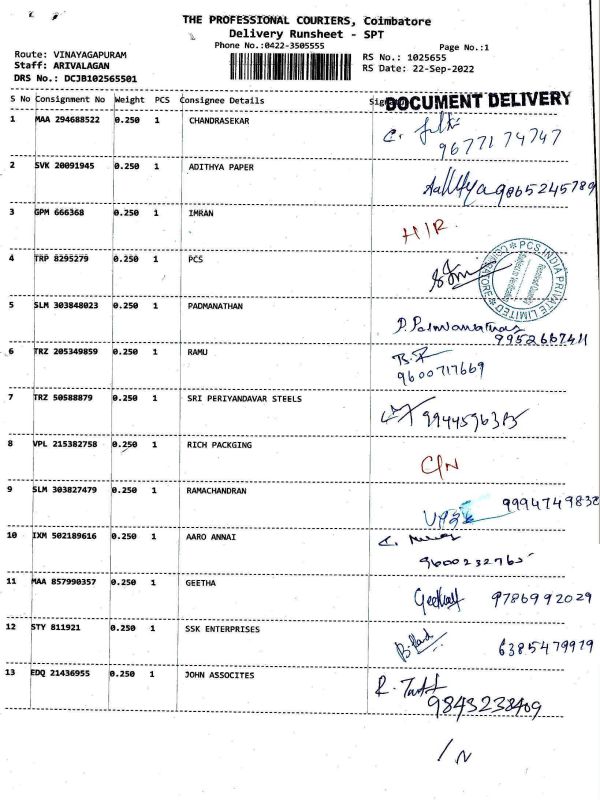 THE PROFESSIONAL COURIERS, Coimbatore
Delivery Runsheet - SPT
Phone No.:0422-3505555 Page No.:1
Route: VINAYAGAPURAM
Staff: ARIVALAGAN
DRS No.: DCJB102565501
RS No.: 1025655
RS Date: 22-Sep-2022
S No Consignment No Weight PCS Consignee Details
DOCUMENT DELIVERY
1 MAA 294688522 0.250 1 CHANDRASEKAR
C.
9677174747
2 SVK 20091945 0.250 1 ADITHYA PAPER
9865245789
3 GPM 666368 0.250 1 IMRAN
H/R.
4 TRP 8295279 0.250 1 PCS
PCS INDIA PRIVATE LIMITED
5 SLM 303848023 0.250 1 PADMANATHAN
P. Padmanathan
9952667411
6 TRZ 205349859 0.250 1 RAMU
9600717669
7 TRZ 50588879 0.250 1 SRI PERIYANDAVAR STEELS
8 VPL 215382758 0.250 1 RICH PACKGING
C/N
9 SLM 303827479 0.250 1 RAMACHANDRAN
9994749832
10 IXM 502189616 0.250 1 AARO ANNAI
9600232765
11 MAA 857990357 1 0.250 GEETHA
9786992029
12 STY 811921 0.250 1 SSK ENTERPRISES
6385479979
13 EDQ 21436955 0.250 1 JOHN ASSOCITES
R.
9843238409
/ N